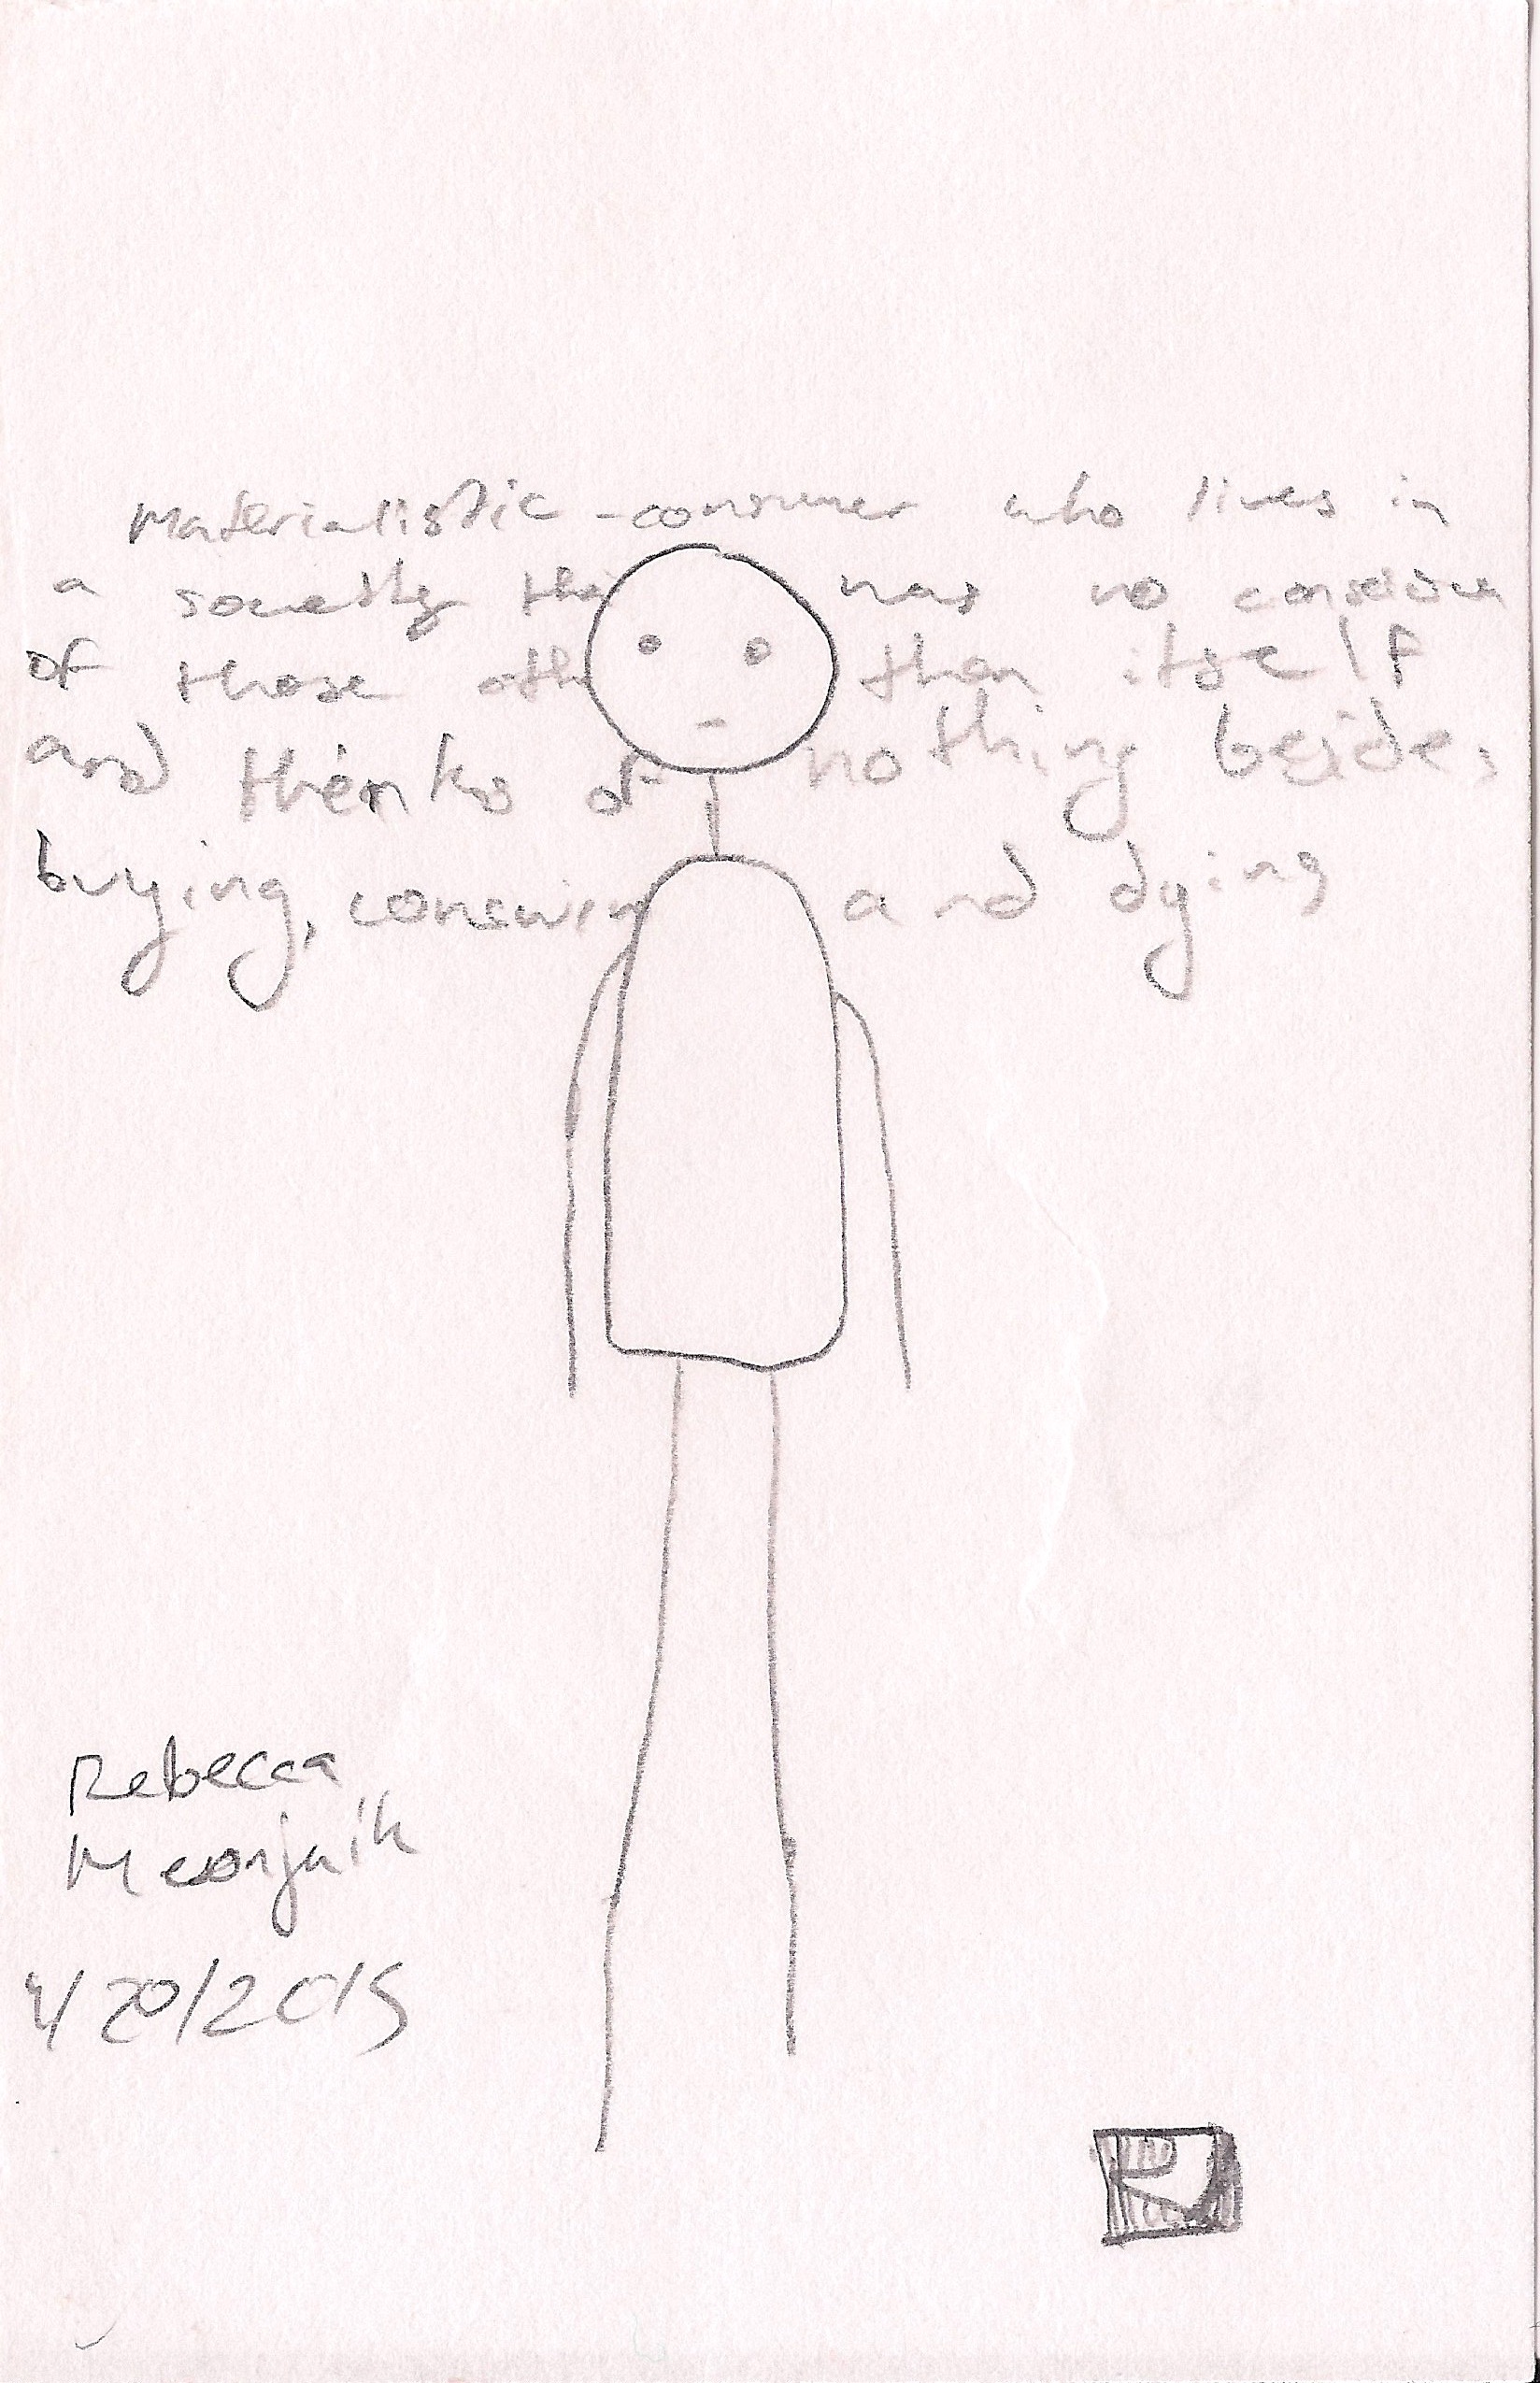 Materialistic-consumer who lives in
a society tha has no
of those oth than itself
and thinks of nothing besides
buying, and dying
Rebecca
4/20/2015